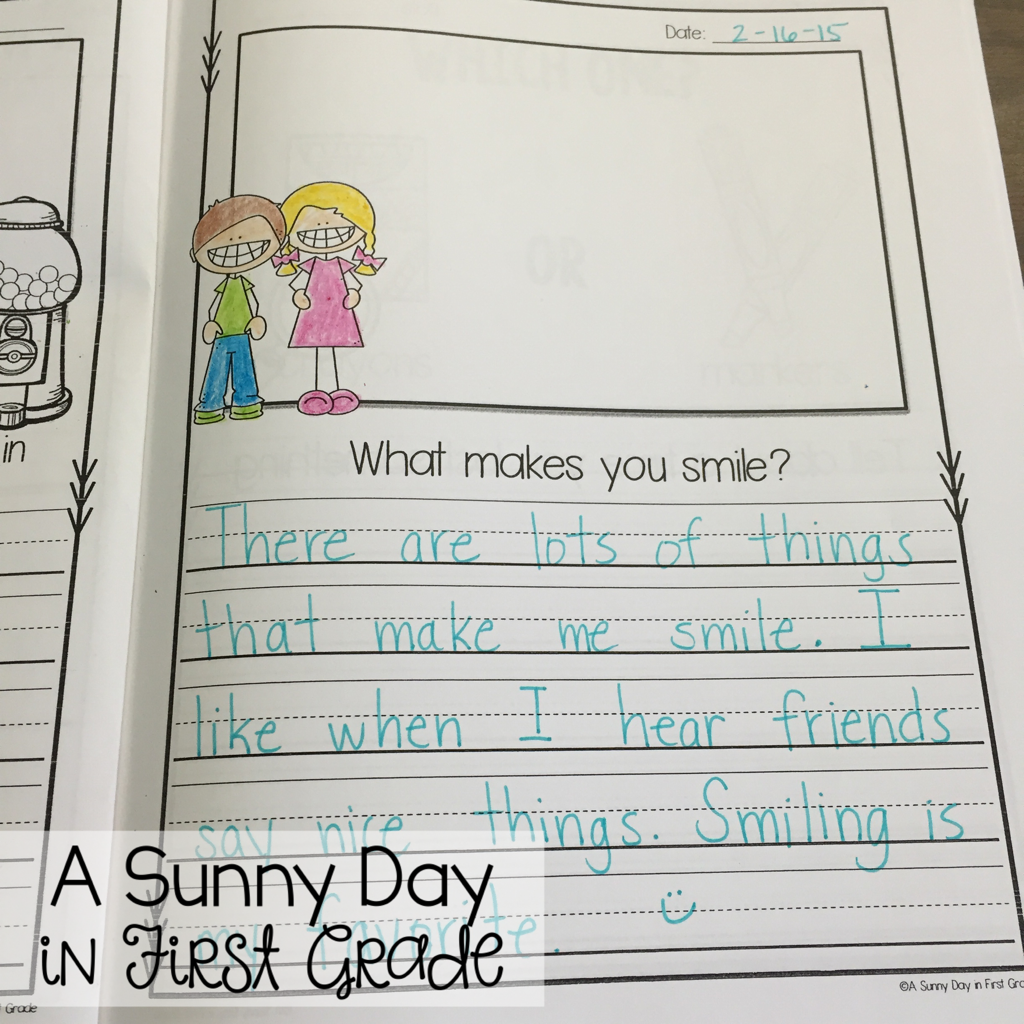 Date: 2-16-15
WHICH ONE?
OR
in
What makes you smile?
There are lots of things
that make me smile. I
like when I hear friends
say nice things. Smiling is
my favorite.
A Sunny Day
in First Grade
©A Sunny Day in First Gra
Grade